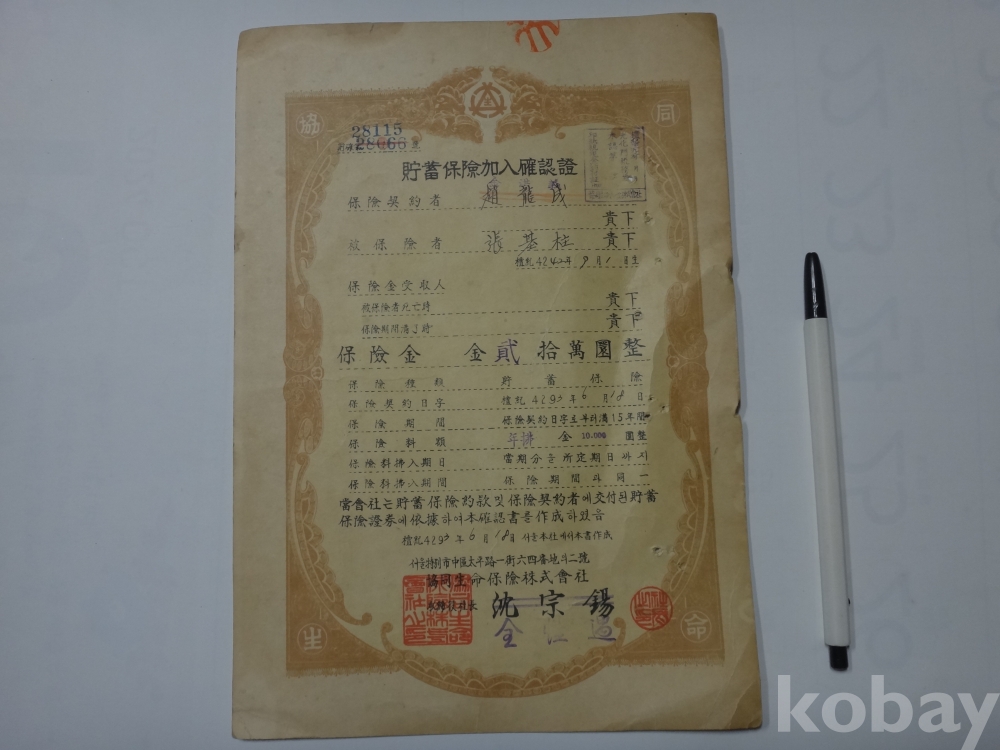 協 同
28115
28066
貯蓄保險加入確認證
保險契約者 趙龍茂
貴下
被保險者 張基柱 貴下
檀紀42 年9月1日生
保險金受取人
被保險者死亡時 貴下
保險期間滿了時 貴下
保險金 金貳拾萬圜整
保險種類 貯蓄保險
保險契約日字 檀紀4293年6月18日
保險期間 保險契約日字로부터滿15年間
保險料額 年拂 金 10.000 圜整
保險料拂入期日 當期分은所定期日까지
保險料拂入期間 保險期間과同一
當會社는貯蓄保險約款및保險契約者에交付된貯蓄
保險證券에依據하여本確認書를作成하였음
檀紀4293年6月18日 서울本社에서本書作成
서울特別市中區太平路一街六四番地의二號
協同生命保險株式會社
取締役社長 沈宗錫
生 命
kobay